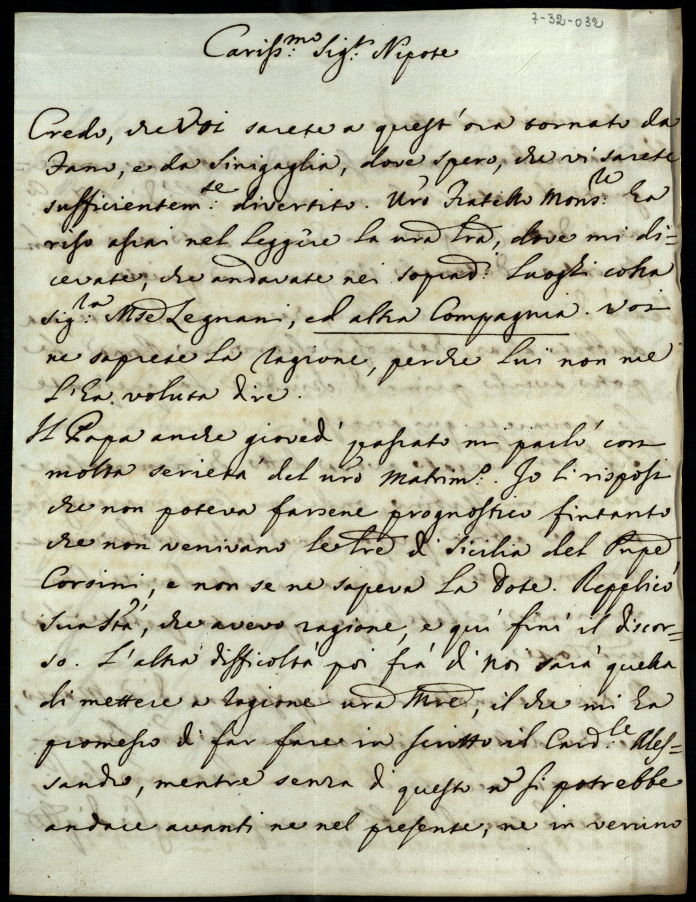 7-32-032
Cariss.mo Sig.r Nipote
Credo, che Voi sarete a quest'ora tornato da
Fano, e da Sinigaglia, dove spero, che vi sarete
sufficientem.te divertito. Vro Fratello Mons.re ha
riso assai nel leggere la vra lra, dove mi di=
cevate, che andavate nei soprad.i Luoghi colla
Sig.ra Mse Legnani, ed altra Compagnia. Voi
ne saprete la ragione, perche lui non me
l'ha voluta dire.
Il Papa anche giovedì passato mi parlò con
molta serietà del vro Matrim.o. Io li risposi
che non poteva farsene prognostico fintanto
che non venivano le lre di Sicilia del Pnpe
Corsini, e non se ne sapeva la Dote. Repplicò
Sua Stà, che avevo ragione, e quì finì il discor=
so. L'altra difficoltà poi frà di Noi sarà quella
di mettere a ragione vra Mre, il che mi ha
promesso di far fare in scritto il Card.le Ales=
sandro, mentre senza di questo nō si potrebbe
andare avanti ne nel presente, ne in veruno